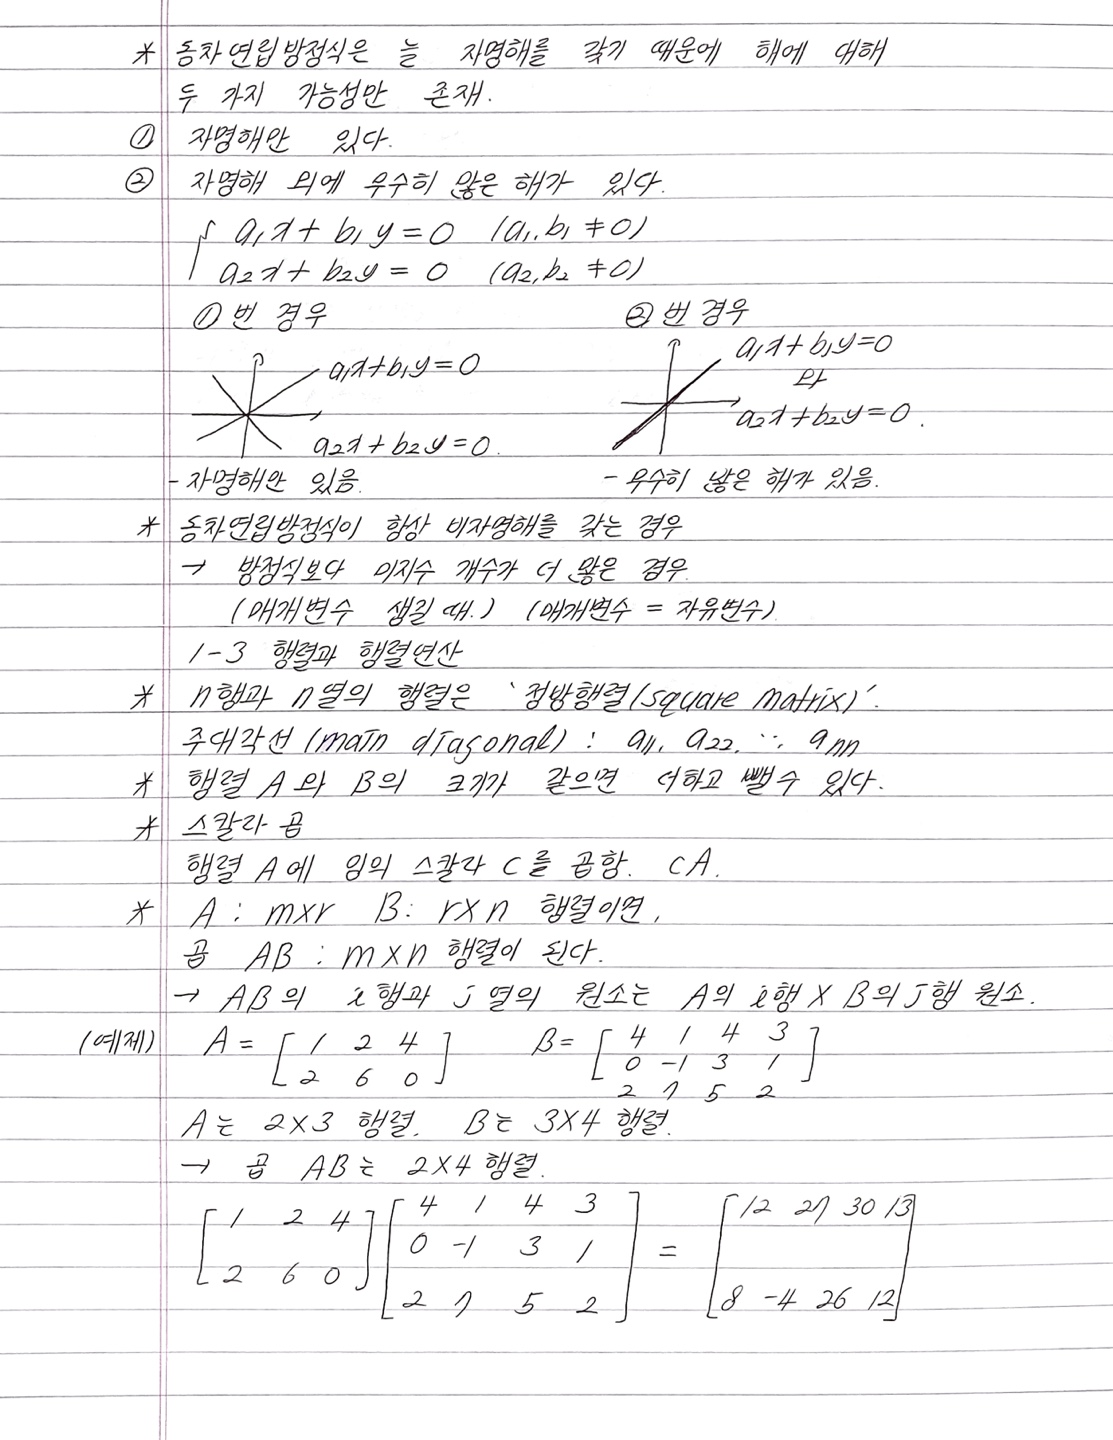 * 동차연립방정식은 늘 자명해를 갖기 때문에 해에 대해
두 가지 가능성만 존재.
① 자명해만 있다.
② 자명해 외에 무수히 많은 해가 있다.
a₁x + b₁y = 0 (a₁, b₁ ≠ 0)
a₂x + b₂y = 0 (a₂, b₂ ≠ 0)
①번 경우 ②번 경우
a₁x + b₁y = 0 a₁x + b₁y = 0
와
a₂x + b₂y = 0. a₂x + b₂y = 0.
- 자명해만 있음. - 무수히 많은 해가 있음.
* 동차연립방정식이 항상 비자명해를 갖는 경우
→ 방정식보다 미지수 개수가 더 많은 경우.
(매개변수 생길 때.) (매개변수 = 자유변수)
1-3 행렬과 행렬연산
* n행과 n열의 행렬은 '정방행렬(square matrix)'.
주대각선(main diagonal) : a₁₁, a₂₂, ..., aₙₙ
* 행렬 A와 B의 크기가 같으면 더하고 뺄수 있다.
* 스칼라 곱
행렬 A에 임의 스칼라 c를 곱함. cA.
* A : m×r B: r×n 행렬이면,
곱 AB : m×n 행렬이 된다.
→ AB의 i행과 j열의 원소는 A의 i행 × B의 j행 원소.
(예제) A = [1 2 4 B = [4 1 4 3
2 6 0] 0 -1 3 1]
2 7 5 2
A는 2×3 행렬. B는 3×4 행렬.
→ 곱 AB는 2×4 행렬.
[1 2 4 [4 1 4 3 [12 27 30 13
0 -1 3 1 =
2 6 0] 2 7 5 2] 8 -4 26 12]